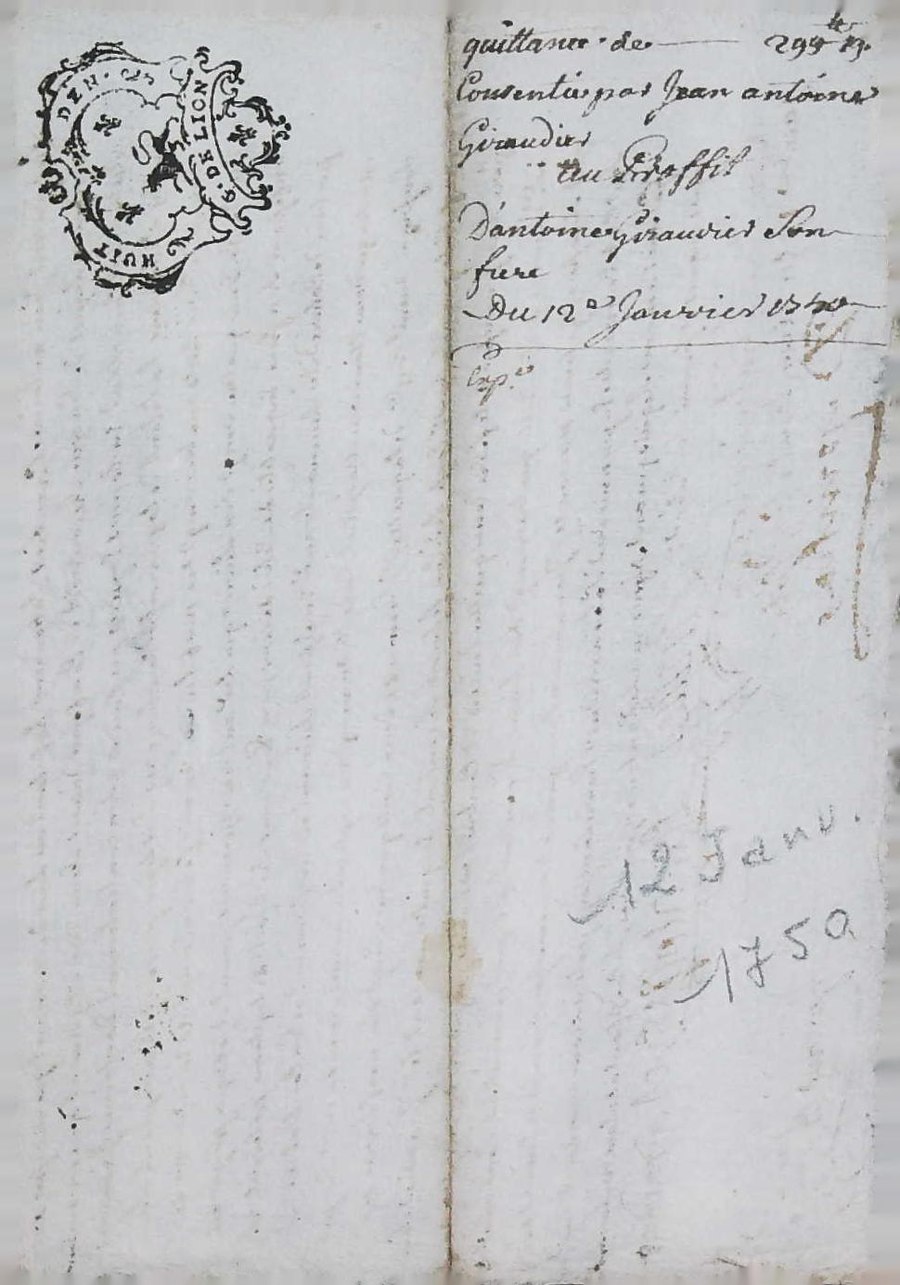 HUIT DEN.
G. DE LION
quittance de
Consentie par Jean antoine
Giraudier
au Proffit
D'antoine Giraudier Son
frere
Du 12e Janvier 1750
Exp.
12 Janv.
1750